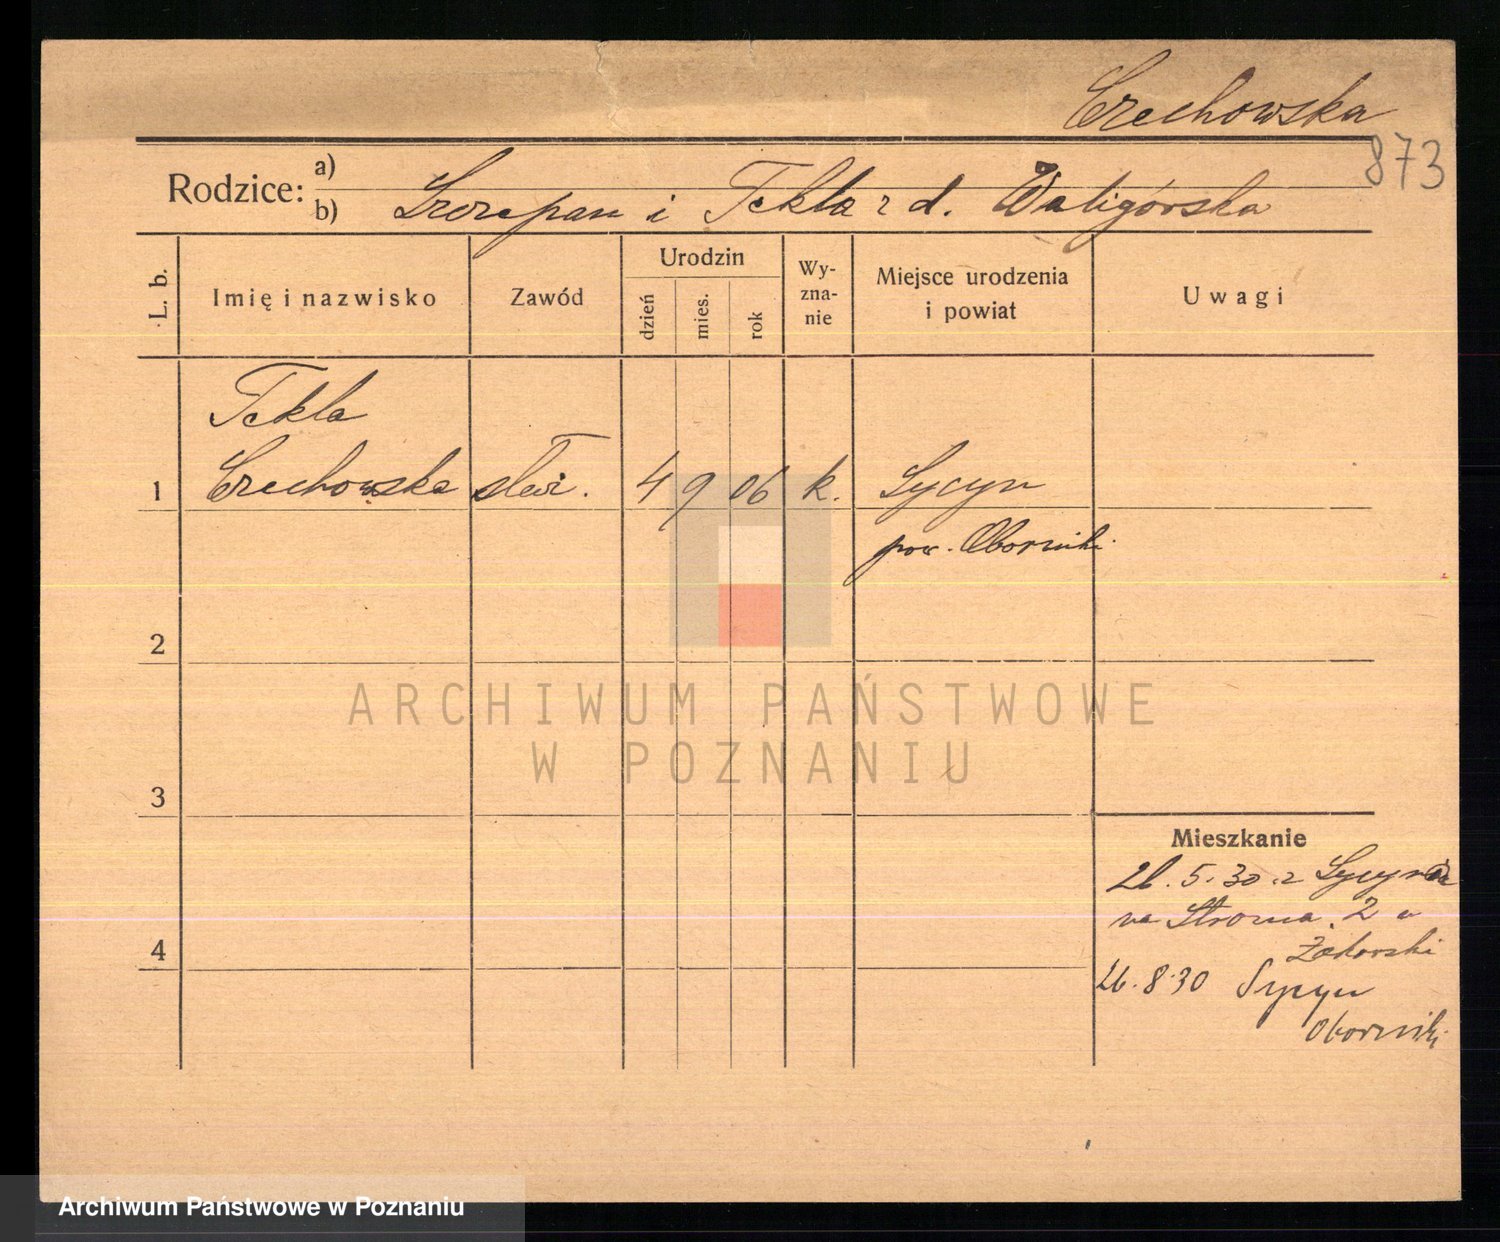 Czechowska
873
Rodzice: a)
b) Szczepan i Tekla z d. Waligórska
L. b. Imię i nazwisko Zawód Urodzin dzień mies. rok Wy-zna-nie Miejsce urodzenia i powiat Uwagi
Tekla
1 Czechowska służ. 4 9 06 k. Sycyn
pow. Oborniki
2
ARCHIWUM PAŃSTWOWE
W POZNANIU
3
Mieszkanie
26. 5. 30 z Sycyna
na Stroma 2 u
4
26. 8. 30 Sycyn
Oborniki
Archiwum Państwowe w Poznaniu